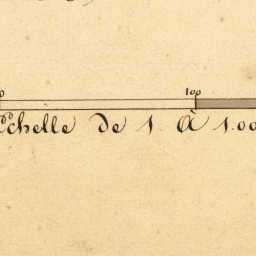 0 100
Echelle de 1 à 1.00